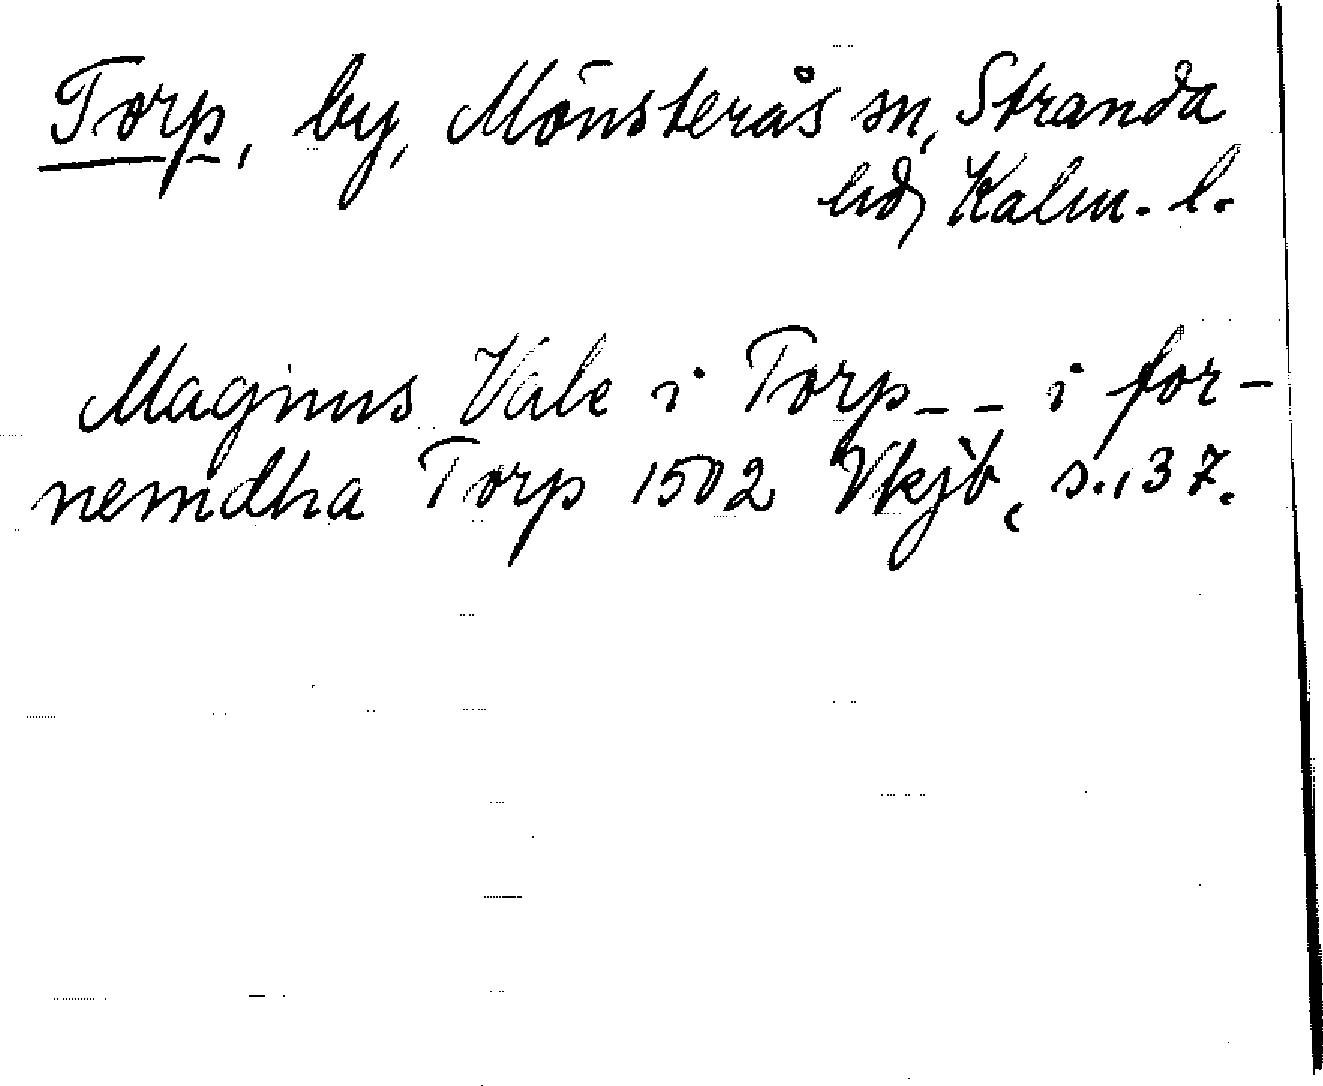 Torp, by, Mönsterås sn, Stranda
hd, Kalm. l.
Magnus Vale i Torp - - i for-
nemdha Torp 1502 Vkjb, s. 137.